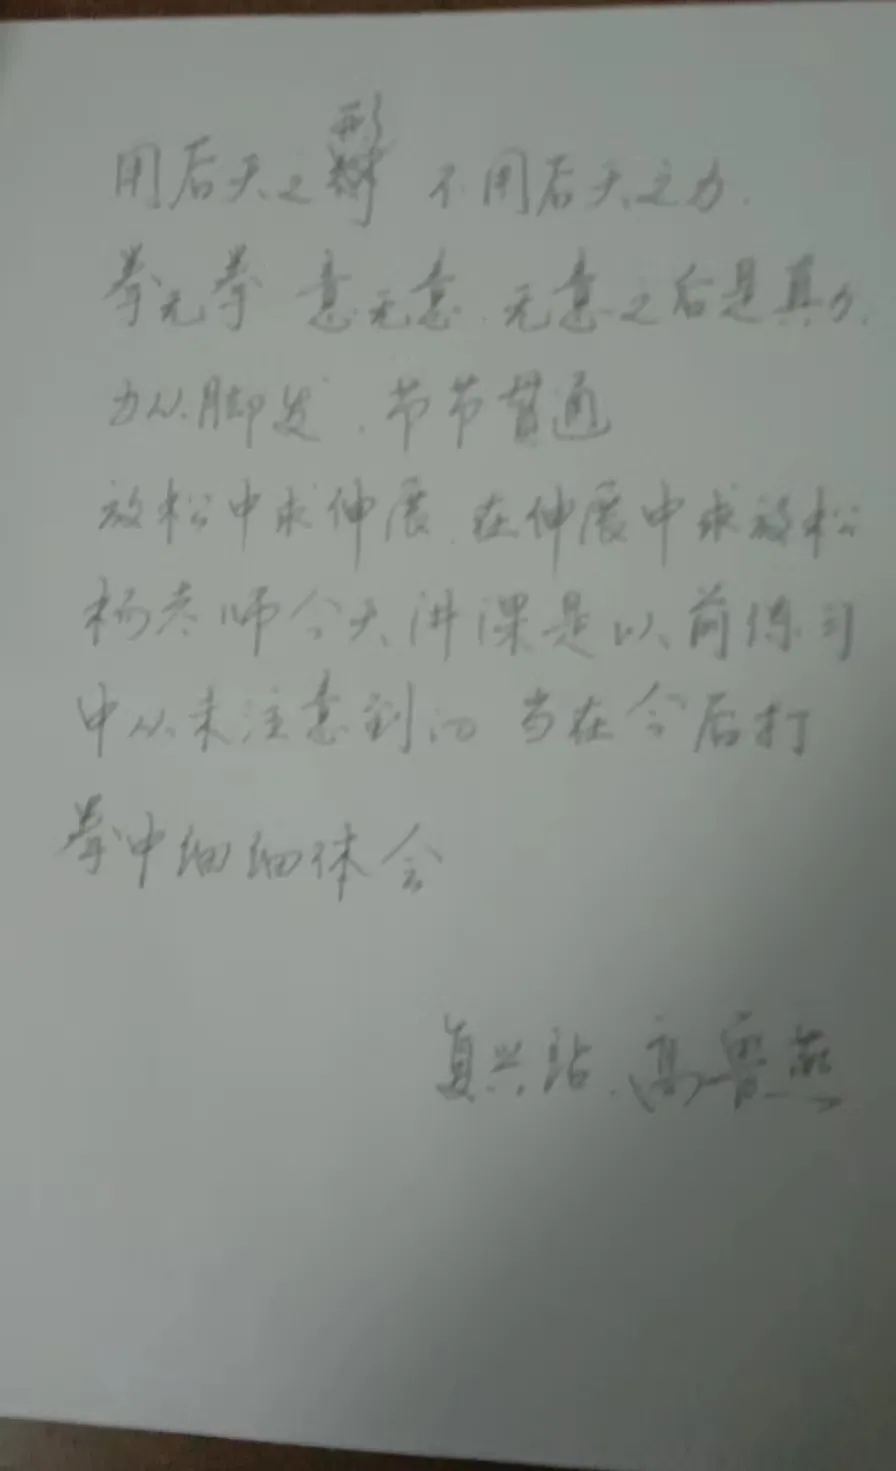 用后天之形 不用后天之力.
拳无拳 意无意.无意之后是真力.
力从脚发.节节贯通
放松中求伸展.在伸展中求放松
杨老师今天讲课是以前练习
中从未注意到的 当在今后打
拳中细细体会
复兴站.高鲁燕